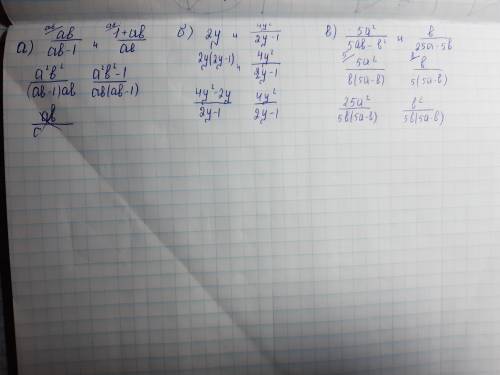 а) ab/(ab-1) и (1+ab)/ab
a²b²/((ab-1)ab) (a²b²-1)/(ab(ab-1))
б) 2y и 4y²/(2y-1)
2y(2y-1), 4y²/(2y-1)
(4y²-2y)/(2y-1) 4y²/(2y-1)
в) 5a²/(5ab-b²) и b/(25a-5b)
5a²/(b(5a-b)) b/(5(5a-b))
25a²/(5b(5a-b)) b²/(5b(5a-b))